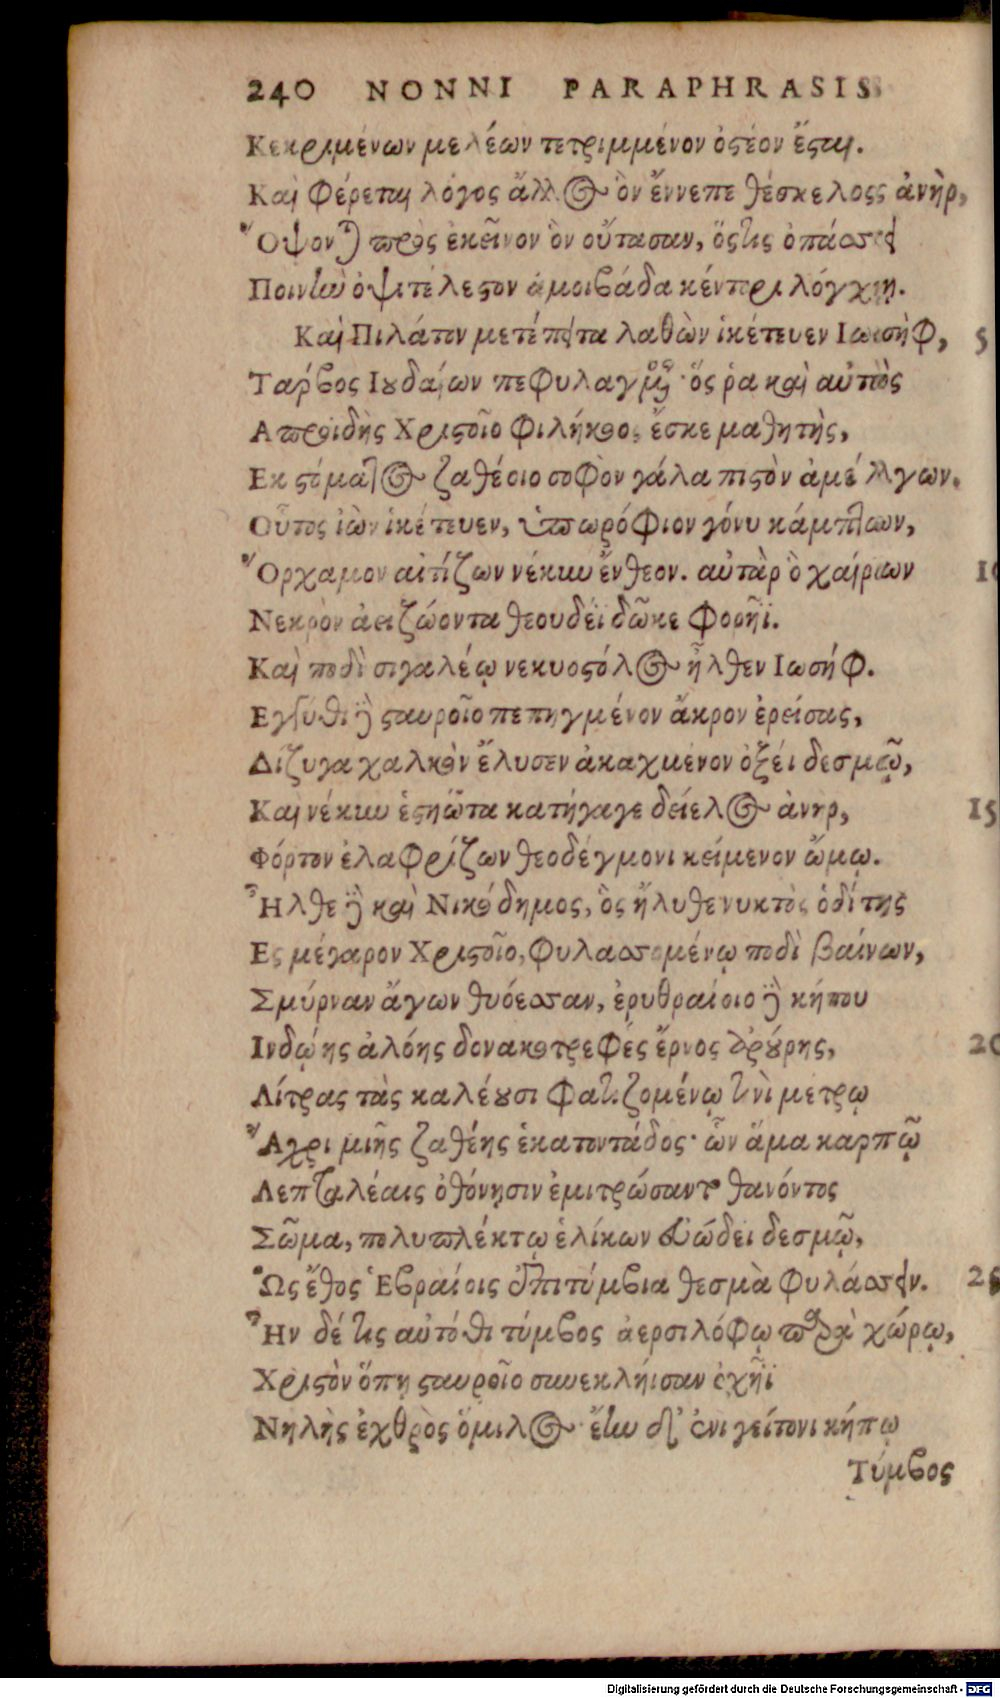 240 NONNI PARAPHRASIS
Κεκριμένων μελέων τετριμμένον ὀστέον ἔσται.
Καὶ φέρεται λόγος ἄλλος ὃν ἔννεπε θέσκελος ἀνὴρ,
Ὄψονται πρὸς ἐκεῖνον ὃν οὔτασαν, ὅστις ὀπάσσει
Ποινὴν ὀψιτέλεστον ἀμοιβάδα κέντορι λόγχῃ.
Καὶ Πιλάτον μετέπειτα λαθὼν ἱκέτευεν Ιωσὴφ, 5
Τάρβος Ιουδαίων πεφυλαγμένος· ὅς ῥα καὶ αὐτὸς
Απροϊδὴς Χριστοῖο φιλήκοος ἔσκε μαθητὴς,
Εκ στόματος ζαθέοιο σοφὸν γάλα πιστὸν ἀμέλγων.
Οὗτος ἰὼν ἱκέτευεν, ὑπωρόφιον γόνυ κάμπτων,
Ὄρχαμον αἰτίζων νέκυν ἔνθεον. αὐτὰρ ὁ χαίρων 10
Νεκρὸν ἀειζώοντα θεουδέϊ δῶκε φορῆϊ.
Καὶ ποδὶ σιγαλέῳ νεκυοστόλος ἦλθεν Ιωσήφ.
Εγγύθι δὲ σταυροῖο πεπηγμένον ἄκρον ἐρείσας,
Δίζυγα χαλκὸν ἔλυσεν ἀκαχμένον ὀξέι δεσμῷ,
Καὶ νέκυν ἑστηῶτα κατήγαγε δείελος ἀνὴρ, 15
Φόρτον ἐλαφρίζων θεοδέγμονι κείμενον ὤμῳ.
Ἦλθε δὲ καὶ Νικόδημος, ὃς ἤλυθε νυκτὸς ὁδίτης
Ες μέγαρον Χριστοῖο, φυλασσομένῳ ποδὶ βαίνων,
Σμύρναν ἄγων θυόεσσαν, ἐρυθραίοιο δὲ κήπου
Ινδῴης ἀλόης δονακοτρεφὲς ἔρνος ἀρούρης, 20
Λίτρας τὰς καλέουσι φατιζομένῳ τινὶ μέτρῳ
Ἄχρι μιῆς ζαθέης ἑκατοντάδος· ὧν ἅμα καρπῷ
Λεπταλέαις ὀθόνῃσιν ἐμιτρώσαντο θανόντος
Σῶμα, πολυπλέκτῳ ἑλίκων εὐώδεϊ δεσμῷ,
Ὡς ἔθος Ἑβραίοις ἐπιτύμβια θεσμὰ φυλάσσειν. 25
Ἦν δέ τις αὐτόθι τύμβος ἀερσιλόφῳ παρὰ χώρῳ,
Χριστὸν ὅπῃ σταυροῖο συνεκλήισαν ὀχῆϊ
Νηλὴς ἐχθρὸς ὅμιλος· ἔην δ' ἐνὶ γείτονι κήπῳ
Τύμβος
Digitalisierung gefördert durch die Deutsche Forschungsgemeinschaft - DFG